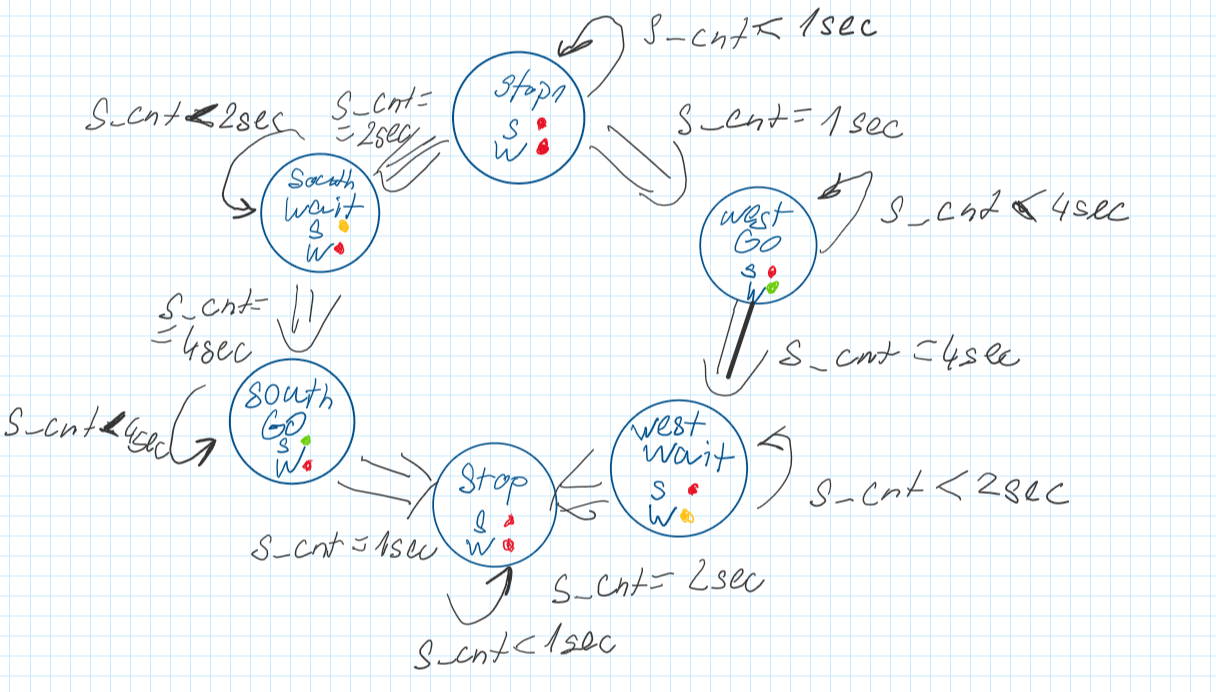 S_cnt < 1sec
Stop1
S
W
S_cnt < 2sec
S_cnt=
=2sec
S_cnt = 1sec
South
wait
S
W
west
GO
S
W
S_cnt < 4sec
S_cnt=
=4sec
S_cnt = 4sec
South
GO
S
W
S_cnt < 4sec
west
wait
S
W
Stop
S
W
S_cnt < 2sec
S_cnt = 1sec
S_cnt = 2sec
S_cnt < 1sec